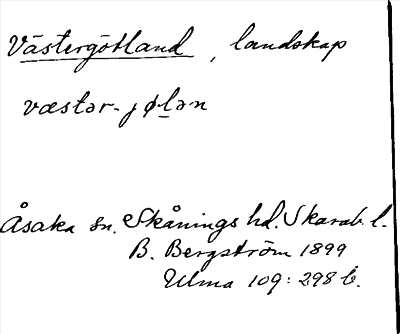 Västergötland, landskap
væstər-jøḻən
Åsaka sn. Skånings hd. Skarab. l.
B. Bergström 1899
Ulma 109:298 b.